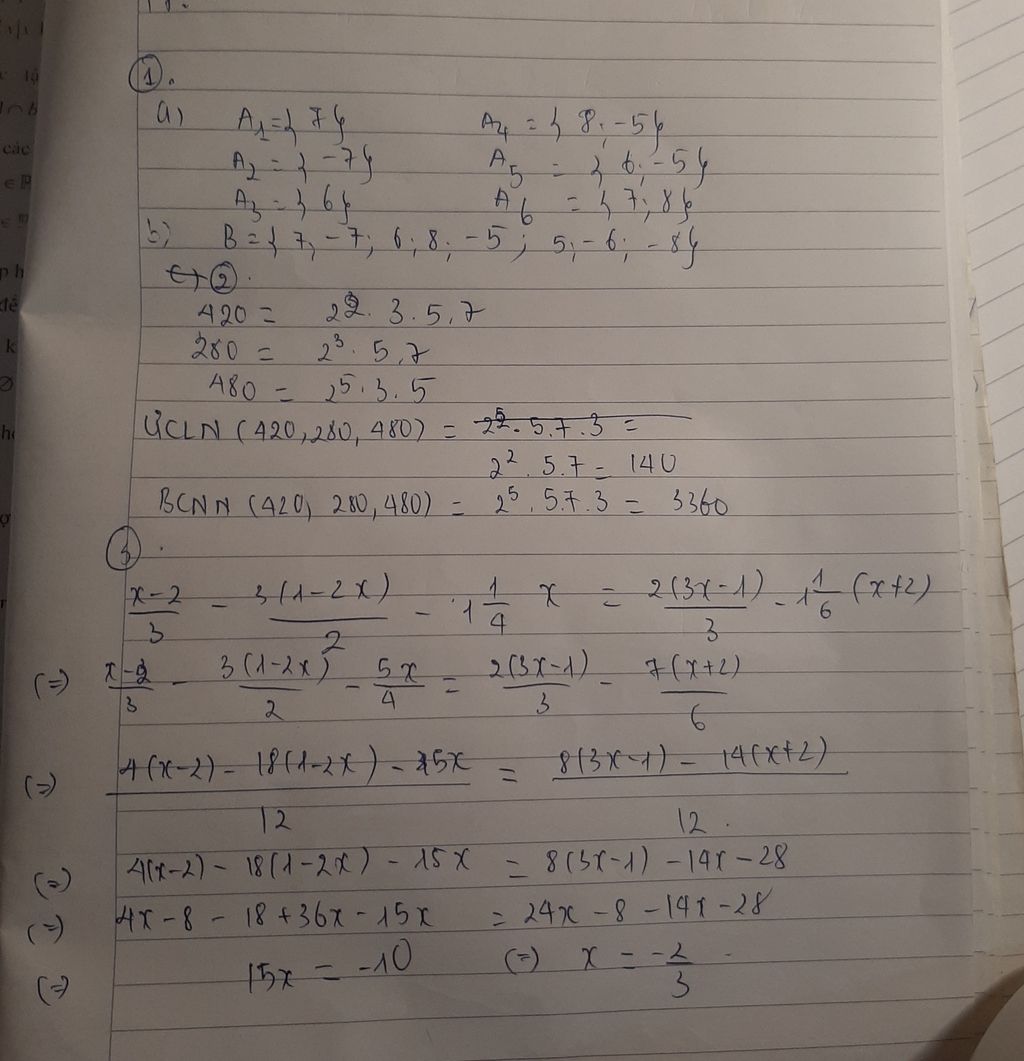 1.
a) A₁ = { 7 } A₄ = { 8; -5 }
A₂ = { -7 } A₅ = { 6; -5 }
A₃ = { 6 } A₆ = { 7; 8 }
b) B = { 7, -7; 6; 8; -5; 5; -6; -8 }
2.
420 = 2². 3. 5. 7
280 = 2³. 5. 7
480 = 2⁵. 3. 5
ƯCLN (420, 280, 480) = 2⁵. 5. 7. 3 =
2². 5. 7 = 140
BCNN (420, 280, 480) = 2⁵. 5. 7. 3 = 3360
3.
(x-2)/3 - 3(1-2x)/2 - 1 1/4 x = 2(3x-1)/3 - 1 1/6 (x+2)
(=) (x-2)/3 - 3(1-2x)/2 - 5x/4 = 2(3x-1)/3 - 7(x+2)/6
(=) (4(x-2) - 18(1-2x) - 15x)/12 = (8(3x-1) - 14(x+2))/12.
(=) 4(x-2) - 18(1-2x) - 15x = 8(3x-1) - 14x - 28
(=) 4x - 8 - 18 + 36x - 15x = 24x - 8 - 14x - 28
(=) 15x = -10 (=) x = -2/3